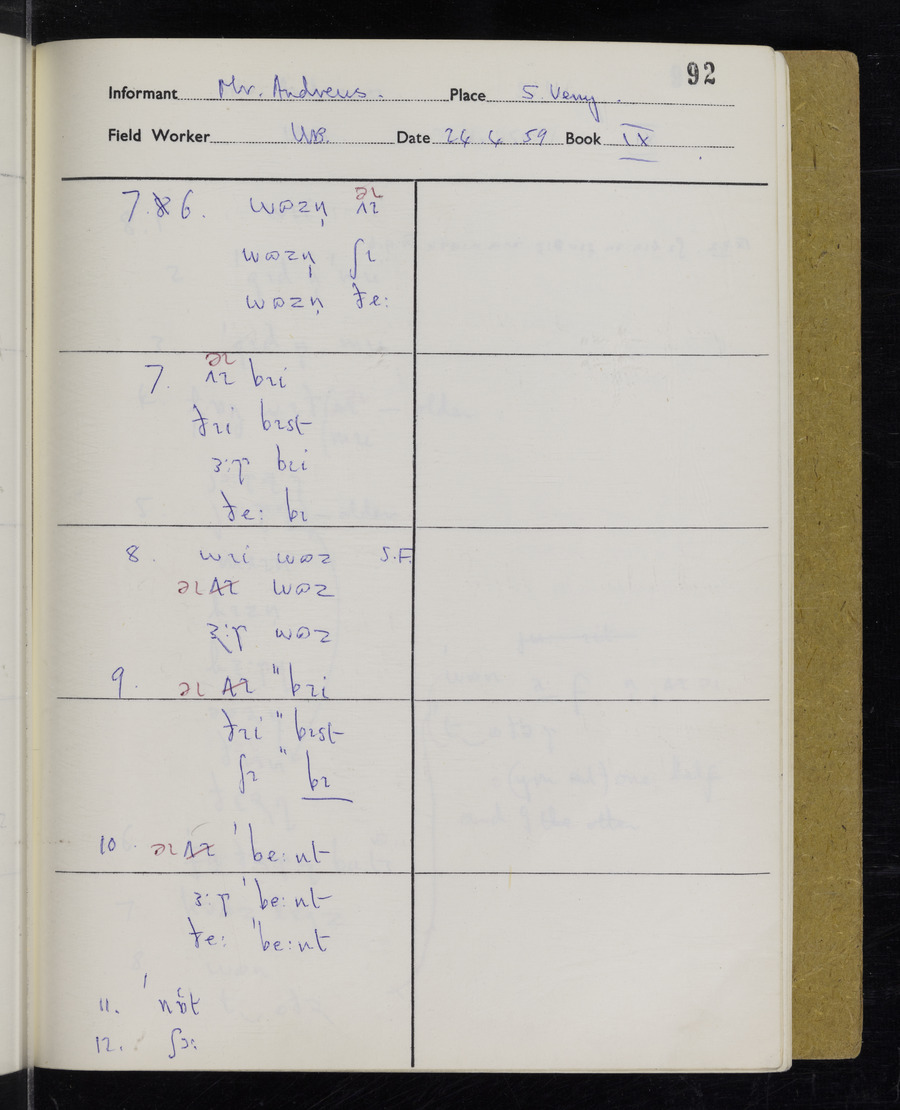 92
Informant Mr. Andrews. Place S. Veny.
Field Worker WB. Date 24 4 59 Book IX
7.6. wɒzn̩ əɪ
wɒzn̩ ʃɪ
wɒzn̩ ðe:
7. əɪ bɪi
ðɪi bɪst
ɜ:ɽ bɪi
ðe: bɪ
8. wɪi wɒz S.F.
əɪ wɒz
ɜ:ɽ wɒz
9. əɪ "bɪi
ðɪi "bɪst
ʃɪ " bɪ
10. əɪ 'be:nt
ɜ:ɽ 'be:nt
ðe: 'be:nt
11. 'nɒt
12. ʃɔ: